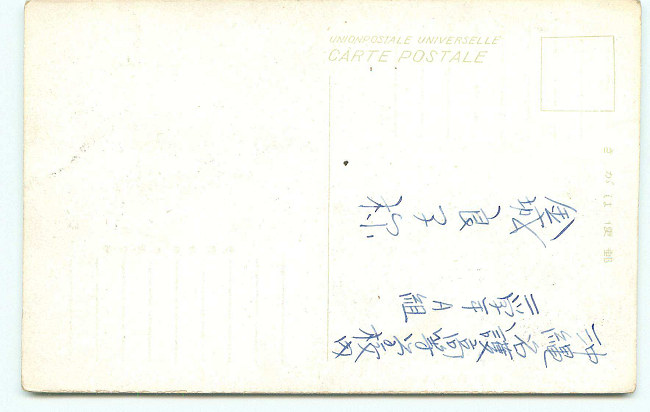 UNIONPOSTALE UNIVERSELLE
CARTE POSTALE
郵便はがき
沖縄名護高等学校内
二学年A組
金城良子様